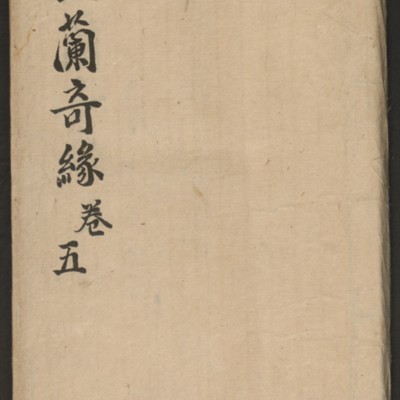 蘭奇緣卷五